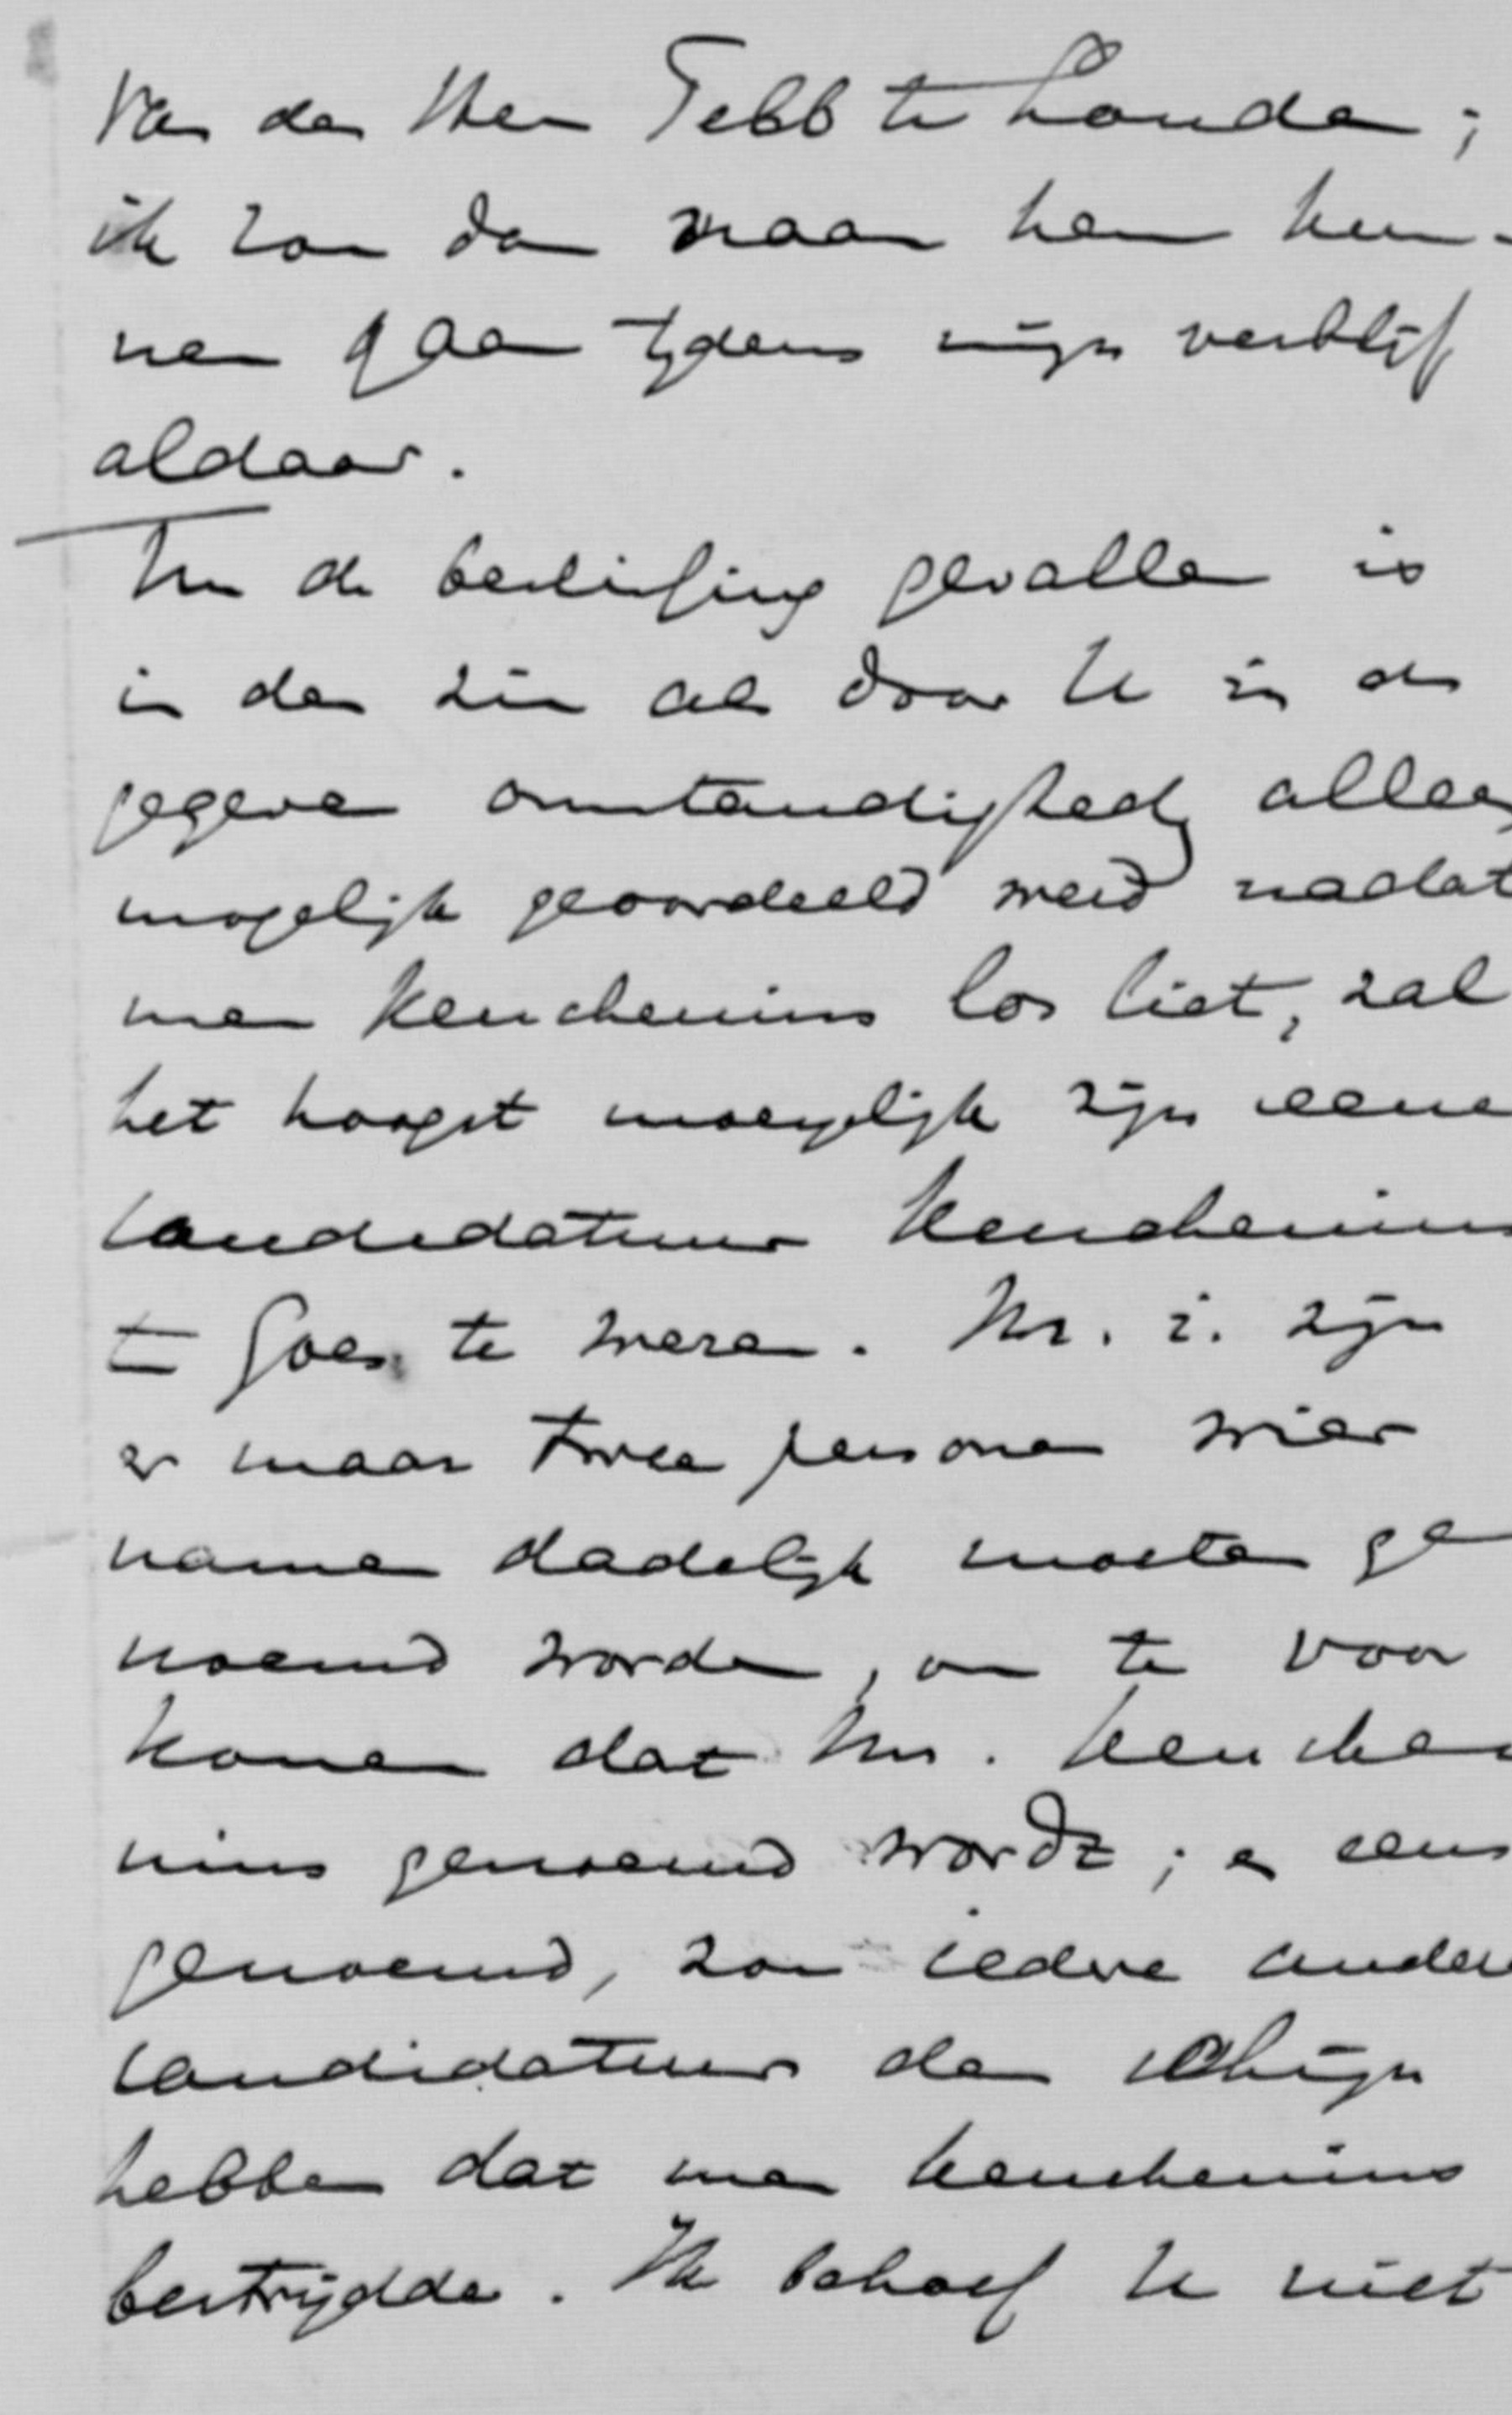 van den Heer Tebb te Londen ;
ik zou dan naar hem kun-
nen gaan tijdens mijn verblijf
aldaar.
Nu de beslissing gevallen is
in den zin als door U in de
gegeven omstandigheden alleen
mogelijk geoordeeld werd nadat
men Keuchenius los liet, zal
het hoogst moeyelijk zijn eene
Candidatuur Keuchenius
te Goes te weren. M. i. zijn
er maar twee personen wier
namen dadelijk moeten ge
noemd worden, om te voor
komen dat Mr. Keuche
nius genoemd wordt ; en eens
genoemd, zou iedere andere
candidatuur den schijn
hebben dat men Keuchenius
bestrijdde. Ik behoef U niet